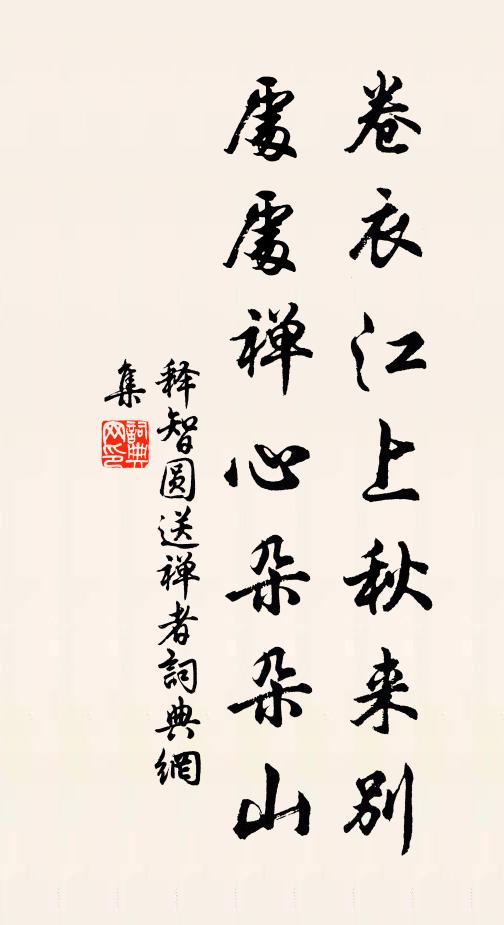 卷衣江上秋来别
處處禅心朵朵山
释智圆送禅者詞典網
集
詞典网印